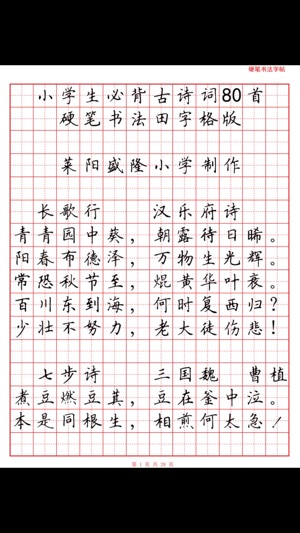 硬笔书法字帖
小学生必背古诗词80首
硬笔书法田字格版
莱阳盛隆小学制作
长歌行 汉乐府诗
青青园中葵，朝露待日晞。
阳春布德泽，万物生光辉。
常恐秋节至，焜黄华叶衰。
百川东到海，何时复西归？
少壮不努力，老大徒伤悲！
七步诗 三国魏 曹植
煮豆燃豆萁，豆在釜中泣。
本是同根生，相煎何太急！
第 1 页 共 28 页